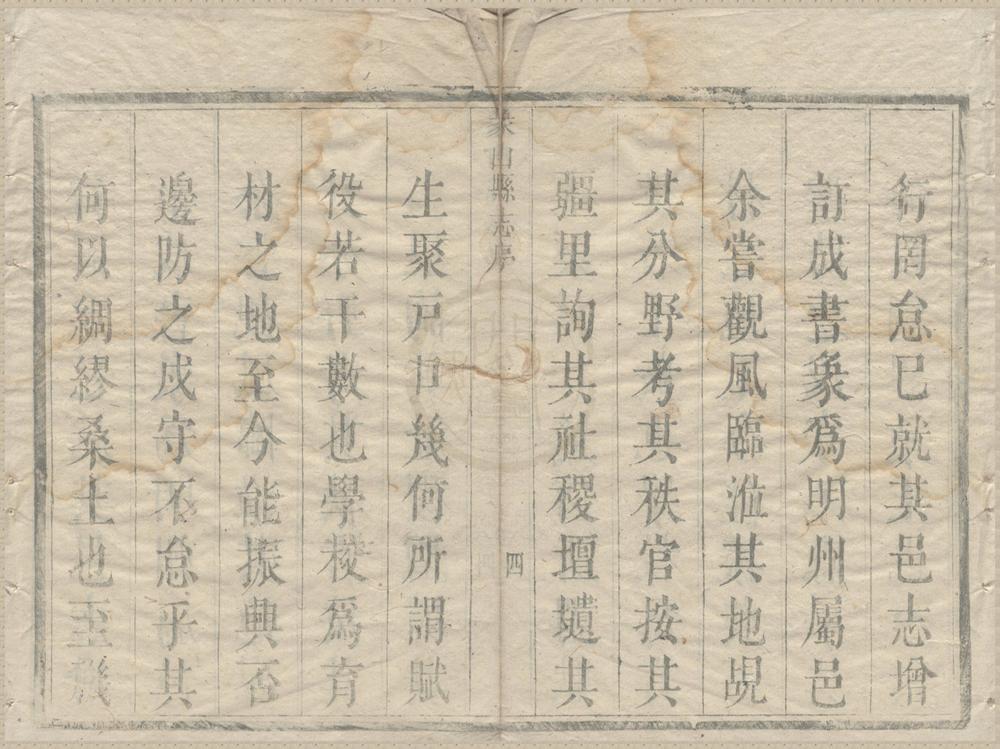 行罔怠巳就其邑志增
訂成書象爲明州屬邑
余嘗觀風臨涖其地覘
其分野考其秩官按其
疆里詢其社稷壇壝其
象山縣志序
四
生聚戸口幾何所謂賦
役若干數也學校爲育
材之地至今能振興否
邊防之戍守不怠乎其
何以綢繆桑土也至幾